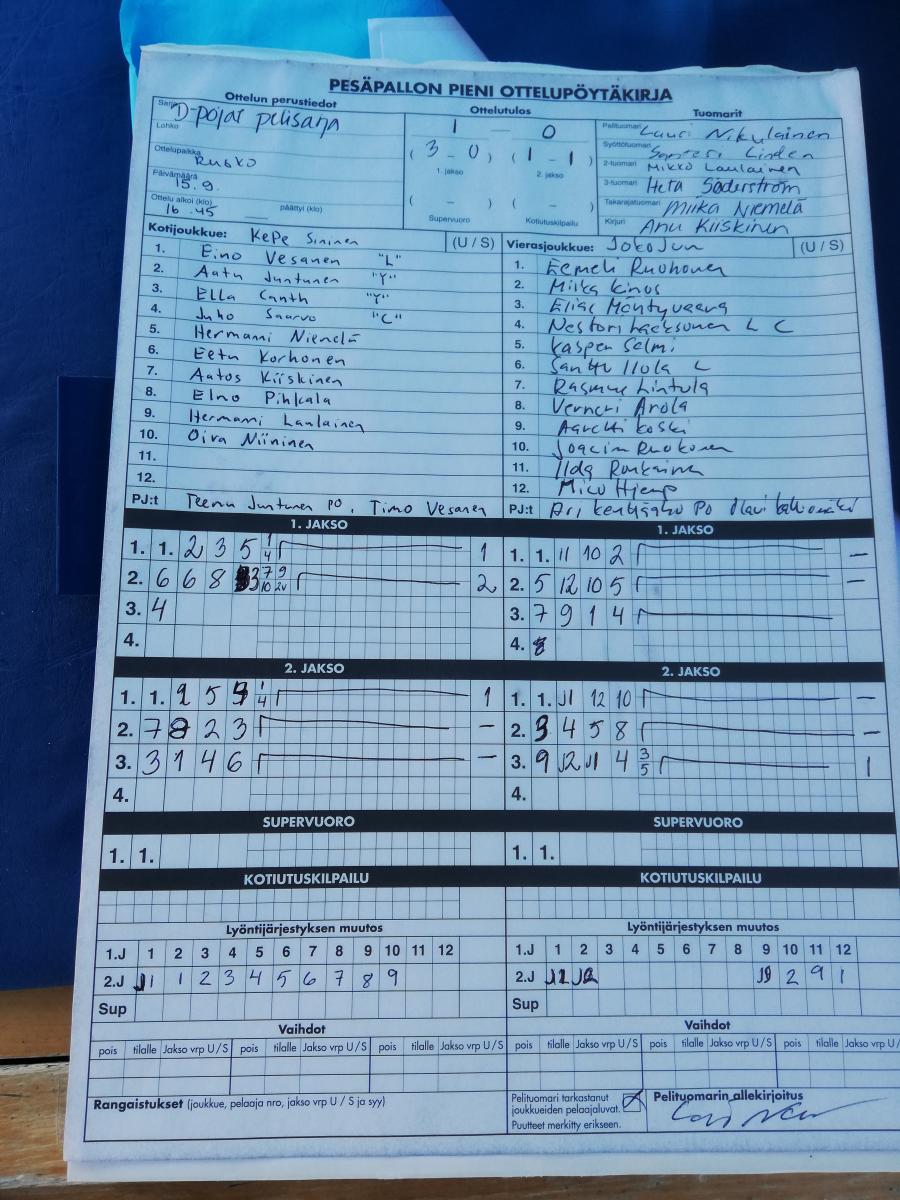 PESÄPALLON PIENI OTTELUPÖYTÄKIRJA
Ottelun perustiedot
Sarja D-pojat pelisarja
Lohko
Ottelupaikka Rusko
Päivämäärä 15.9.
Ottelu alkoi (klo) 16.45 päättyi (klo)
Ottelutulos
1 – 0
(3 – 0) (1 – 1)
1. jakso 2. jakso
( – ) ( – )
Supervuoro Kotiutuskilpailu
Tuomarit
Pelituomari Lauri Nikulainen
Syöttötuomari Santeri Linden
2-tuomari Mikko Laulainen
3-tuomari Heta Söderström
Takarajatuomari Miika Niemelä
Kirjuri Anu Kiiskinen
Kotijoukkue: KePe Sininen (U / S)
1. Eino Vesanen "L"
2. Aatu Juntunen "Y"
3. Ella Canth "Y"
4. Juho Saarvo "C"
5. Hermanni Niemelä
6. Eetu Korhonen
7. Aatos Kiiskinen
8. Eino Pihkala
9. Hermanni Laulainen
10. Oiva Niininen
11.
12.
PJ:t Teemu Juntunen PO, Timo Vesanen
Vierasjoukkue: JoKoJun (U / S)
1. Eemeli Ruohonen
2. Miika Kinos
3. Elias Mäntyvaara
4. Nestori Laaksonen L C
5. Kasper Selmi
6. Santtu Ilola L
7. Rasmus Lintula
8. Verneri Arola
9. Aaretti Koski
10. Joacim Ruokonen
11. Iida
12. Mico
PJ:t Ari PO Olavi
1. JAKSO
1. 1. 2 3 5 1/4 1
2. 6 6 8 3 7/10 9/2v 2
3. 4
4.
1. JAKSO
1. 1. 11 10 2 –
2. 5 12 10 5 –
3. 7 9 1 4
4. 8
2. JAKSO
1. 1. 2 5 9 1/4 1
2. 7 8 2 3 –
3. 3 1 4 6 –
4.
2. JAKSO
1. 1. 11 12 10 –
2. 3 4 5 8 –
3. 9 12 11 4 3/5 1
4.
SUPERVUORO
1. 1.
SUPERVUORO
1. 1.
KOTIUTUSKILPAILU
KOTIUTUSKILPAILU
Lyöntijärjestyksen muutos
1.J 1 2 3 4 5 6 7 8 9 10 11 12
2.J 1 1 2 3 4 5 6 7 8 9
Sup
Lyöntijärjestyksen muutos
1.J 1 2 3 4 5 6 7 8 9 10 11 12
2.J 11 12 2 9 1
Sup
Vaihdot
pois tilalle Jakso vrp U / S pois tilalle Jakso vrp U / S pois tilalle Jakso vrp U / S
Vaihdot
pois tilalle Jakso vrp U / S pois tilalle Jakso vrp U / S pois tilalle Jakso vrp U /
Rangaistukset (joukkue, pelaaja nro, jakso vrp U / S ja syy)
Pelituomari tarkastanut
joukkueiden pelaajaluvat.
Puutteet merkitty erikseen.
Pelituomarin allekirjoitus